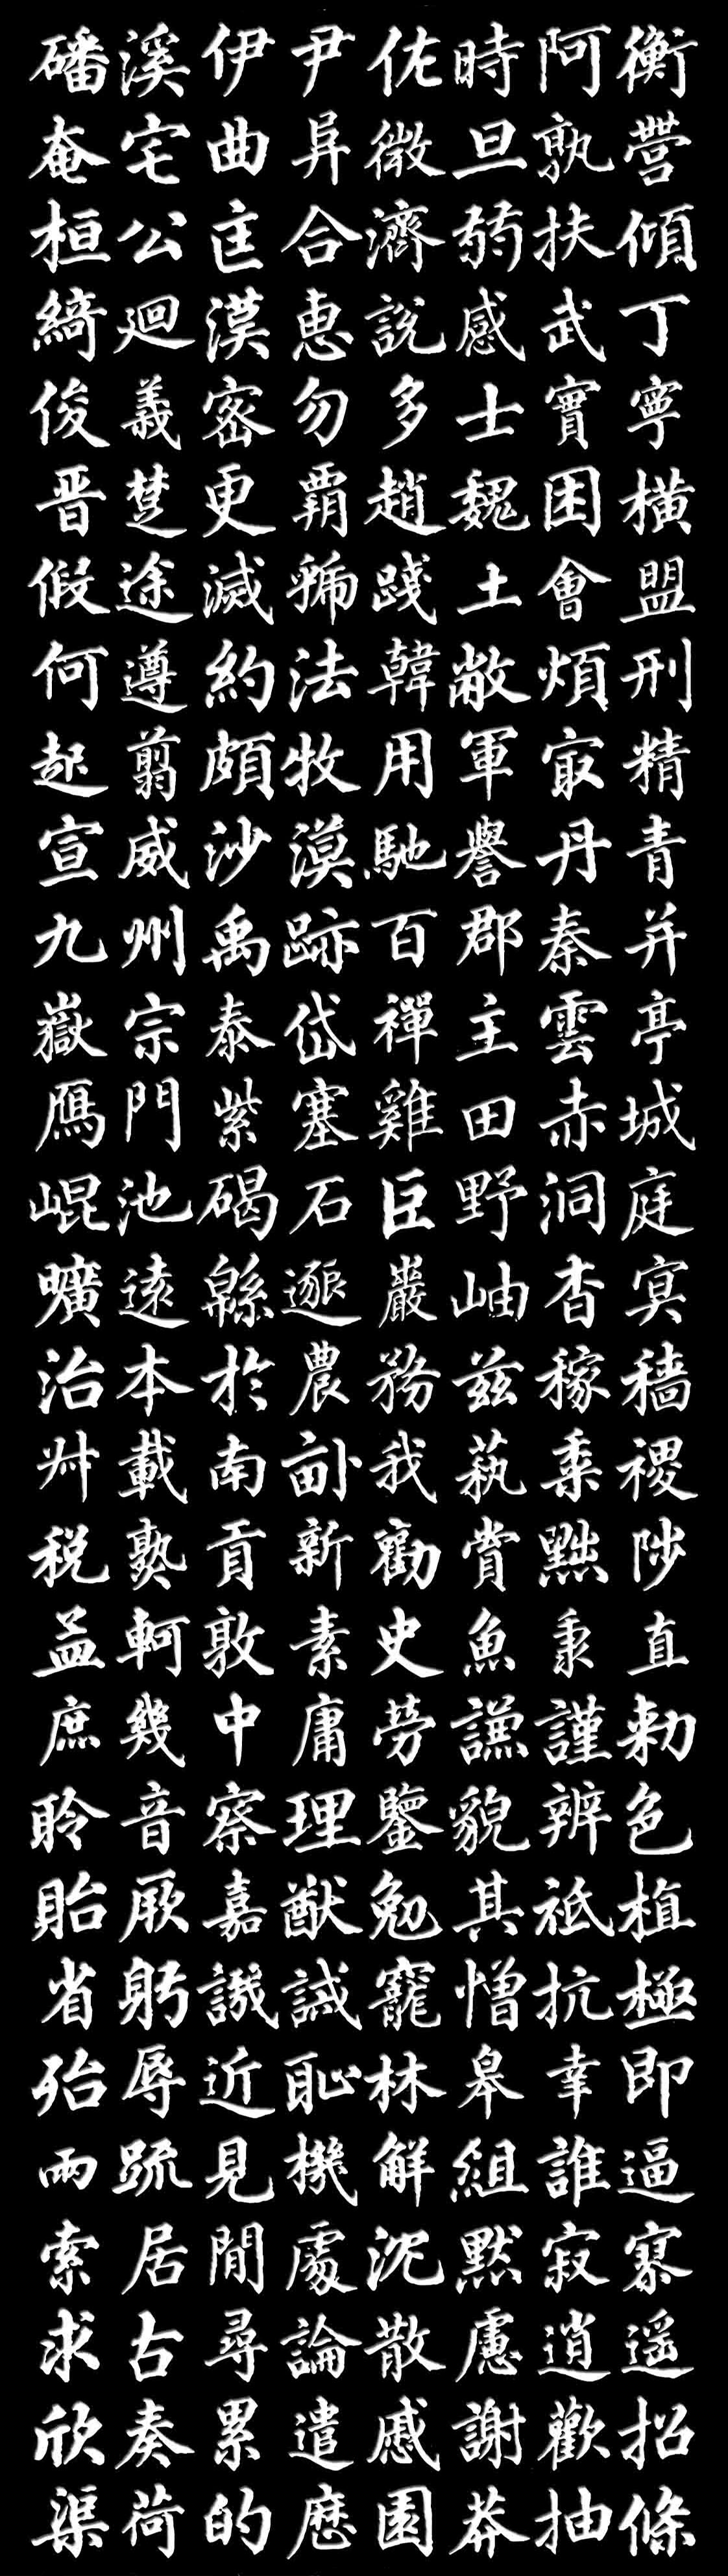 磻溪伊尹佐時阿衡
奄宅曲阜微旦孰營
桓公匡合濟弱扶傾
綺迴漢惠說感武丁
俊義密勿多士實寧
晋楚更霸趙魏困橫
假途滅虢踐土會盟
何遵約法韓敝煩刑
起翦頗牧用軍最精
宣威沙漠馳譽丹青
九州禹跡百郡秦并
嶽宗泰岱禪主雲亭
鴈門紫塞雞田赤城
崐池碣石巨野洞庭
曠遠緜邈巖岫杳冥
治本於農務兹稼穡
俶載南畝我藝黍稷
税熟貢新勸賞黜陟
孟軻敦素史魚秉直
庶幾中庸勞謙謹勑
聆音察理鑒貌辨色
貽厥嘉猷勉其祗植
省躬譏誡寵增抗極
殆辱近恥林皋幸即
兩疏見機解組誰逼
索居閒處沉默寂寥
求古尋論散慮逍遥
欣奏累遣慼謝歡招
渠荷的歷園莽抽條